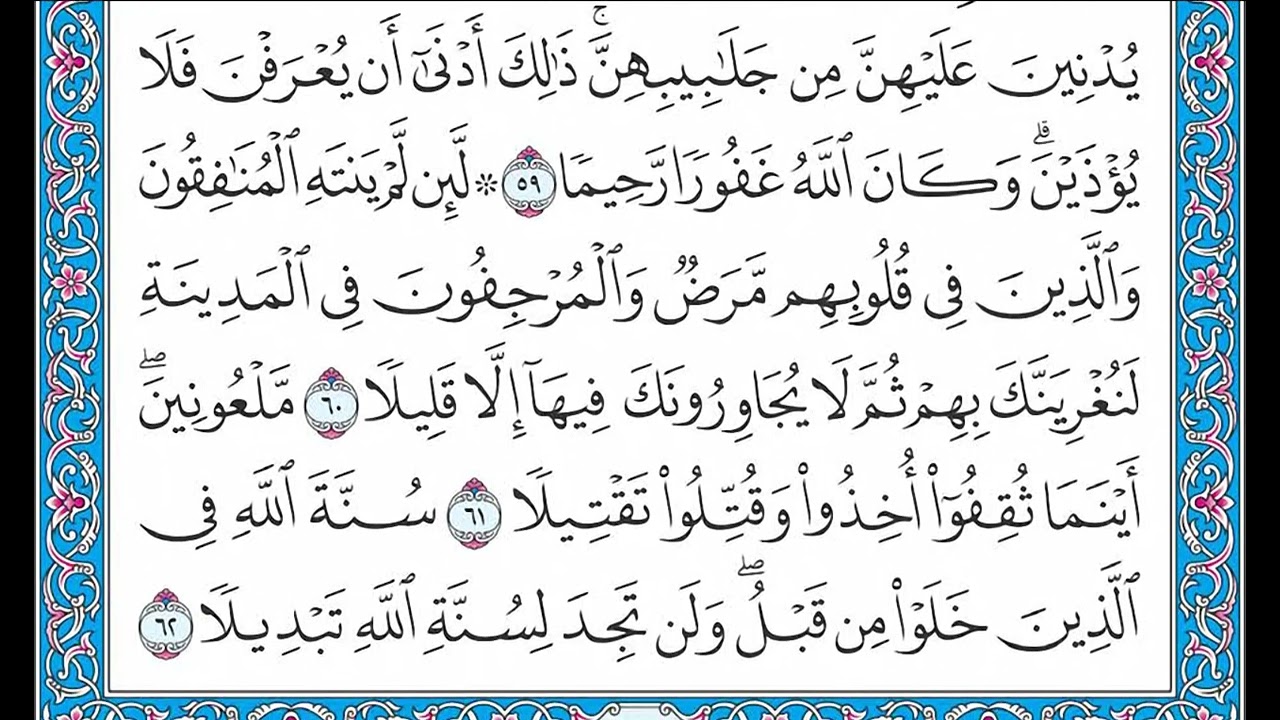 يُدْنِينَ عَلَيْهِنَّ مِن جَلَـٰبِيبِهِنَّ ۚ ذَٰلِكَ أَدْنَىٰٓ أَن يُعْرَفْنَ فَلَا
يُؤْذَيْنَ ۗ وَكَانَ ٱللَّهُ غَفُورًا رَّحِيمًا ٥٩ ۞ لَّئِن لَّمْ يَنتَهِ ٱلْمُنَـٰفِقُونَ
وَٱلَّذِينَ فِى قُلُوبِهِم مَّرَضٌ وَٱلْمُرْجِفُونَ فِى ٱلْمَدِينَةِ
لَنُغْرِيَنَّكَ بِهِمْ ثُمَّ لَا يُجَاوِرُونَكَ فِيهَآ إِلَّا قَلِيلًا ٦٠ مَّلْعُونِينَ ۖ
أَيْنَمَا ثُقِفُوٓا۟ أُخِذُوا۟ وَقُتِّلُوا۟ تَقْتِيلًا ٦١ سُنَّةَ ٱللَّهِ فِى
ٱلَّذِينَ خَلَوْا۟ مِن قَبْلُ ۖ وَلَن تَجِدَ لِسُنَّةِ ٱللَّهِ تَبْدِيلًا ٦٢